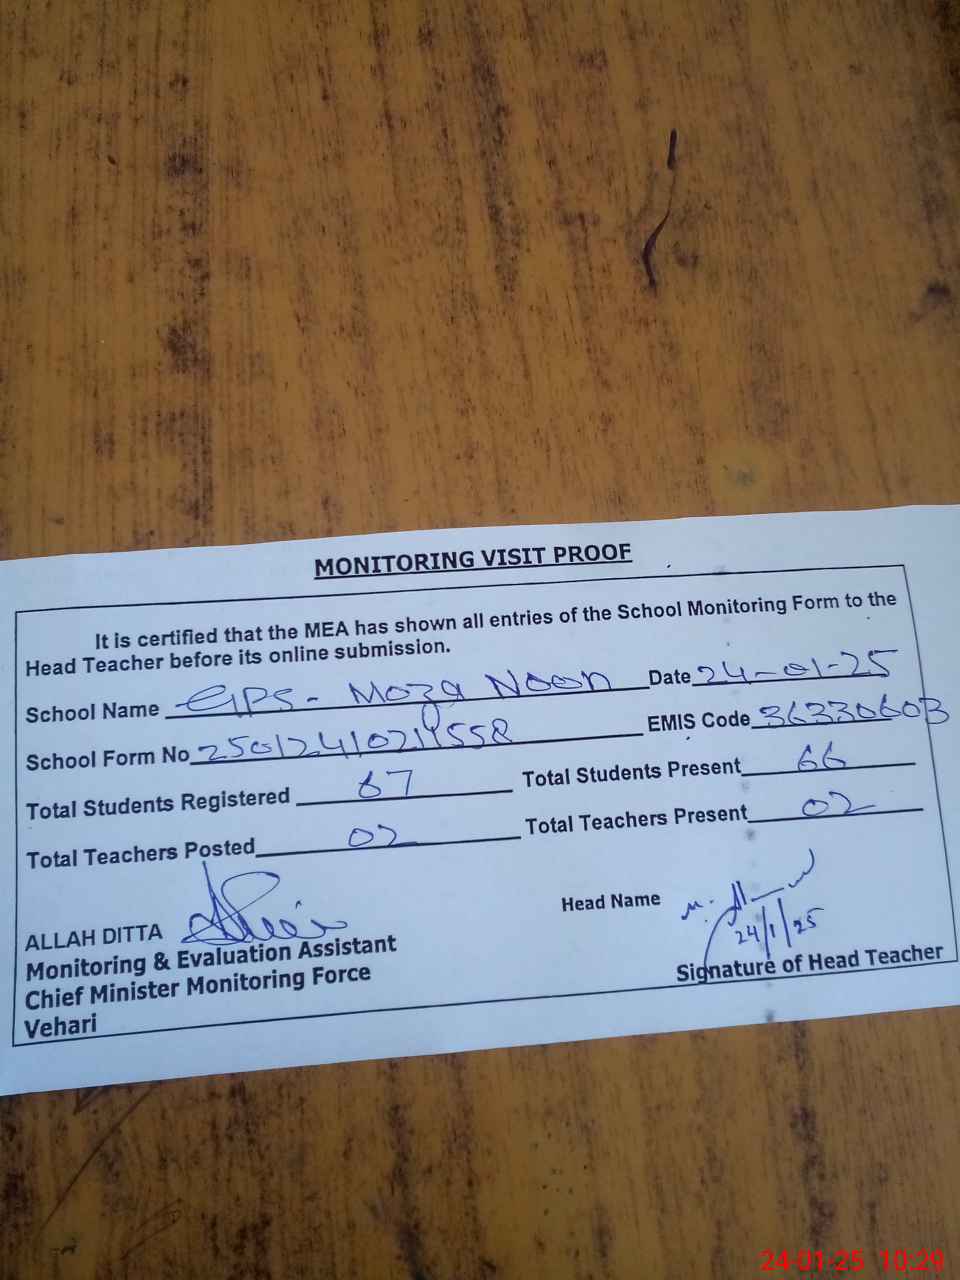 MONITORING VISIT PROOF
It is certified that the MEA has shown all entries of the School Monitoring Form to the
Head Teacher before its online submission.
School Name GPS - Moza Noon Date 24-01-25
School Form No EMIS Code 36330603
Total Students Registered 67 Total Students Present 66
Total Teachers Posted 02 Total Teachers Present 02
ALLAH DITTA
Head Name
24/1/25
Monitoring & Evaluation Assistant
Signature of Head Teacher
Chief Minister Monitoring Force
Vehari
24-01-25 10:29